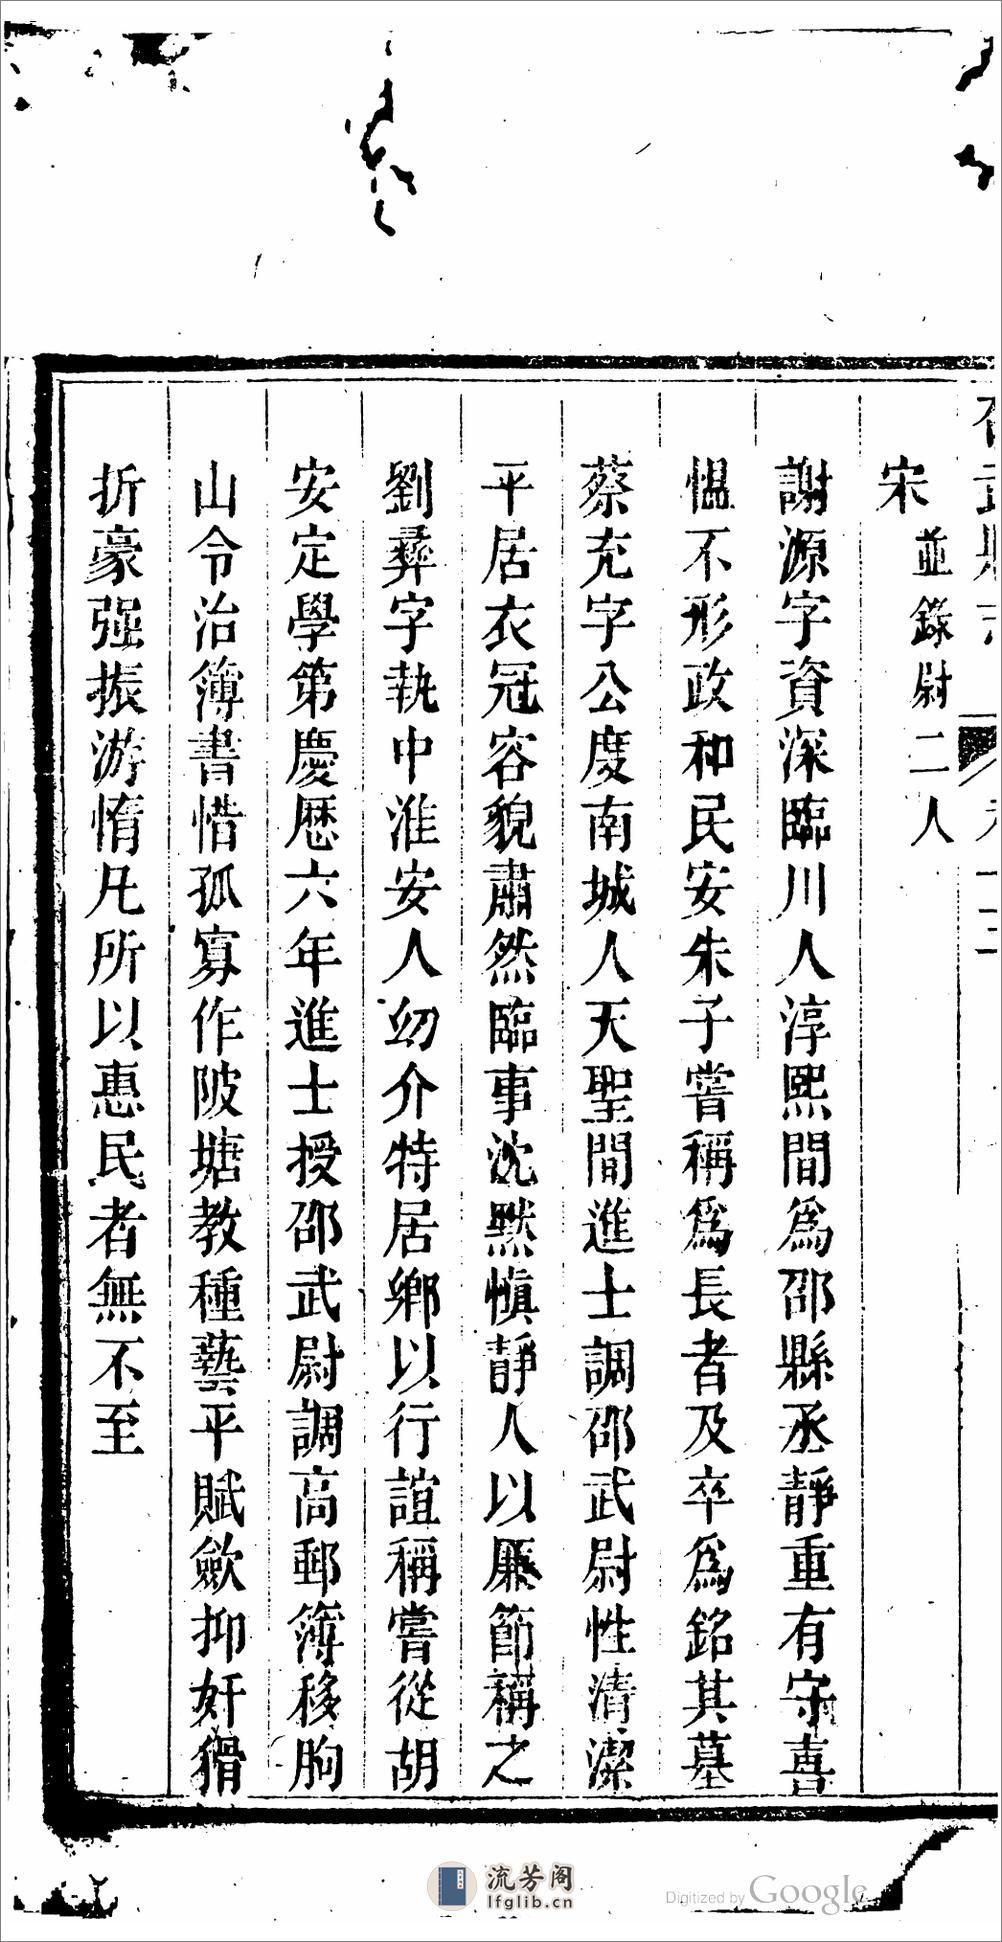 宋並錄尉二人
謝源字資深臨川人淳熙間爲邵縣丞靜重有守喜
慍不形政和民安朱子嘗稱爲長者及卒爲銘其墓
蔡充字公度南城人天聖間進士調邵武尉性清潔
平居衣冠容貌肅然臨事沈默愼靜人以廉節稱之
劉彝字執中淮安人幼介特居鄉以行誼稱嘗從胡
安定學第慶歷六年進士授邵武尉調高郵簿移朐
山令治簿書惜孤寡作陂塘教種藝平賦歛抑奸猾
折豪强振游惰凡所以惠民者無不至
流芳阁
lfglib.cn
Digitized by Google